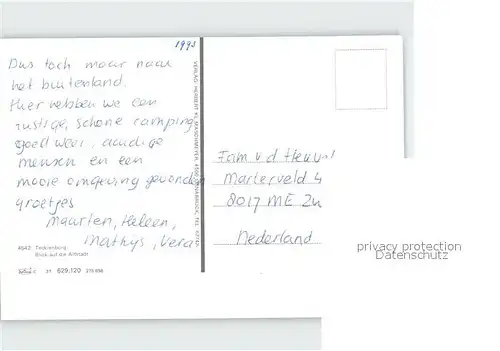 1993
Dus toch maar naar
het buitenland.
Hier hebben we een
rustige, schone camping,
goed weer, aardige
mensen en een
mooie omgeving gevonden
groetjes
Maarten, Heleen,
Mathys, Vera
4542 Tecklenburg
Blick auf die Altstadt
21 629.120
VERLAG HERBERT
Fam v d Heuvel
Marterveld 4
8017 ME Zw
Nederland
privacy protection
Datenschutz